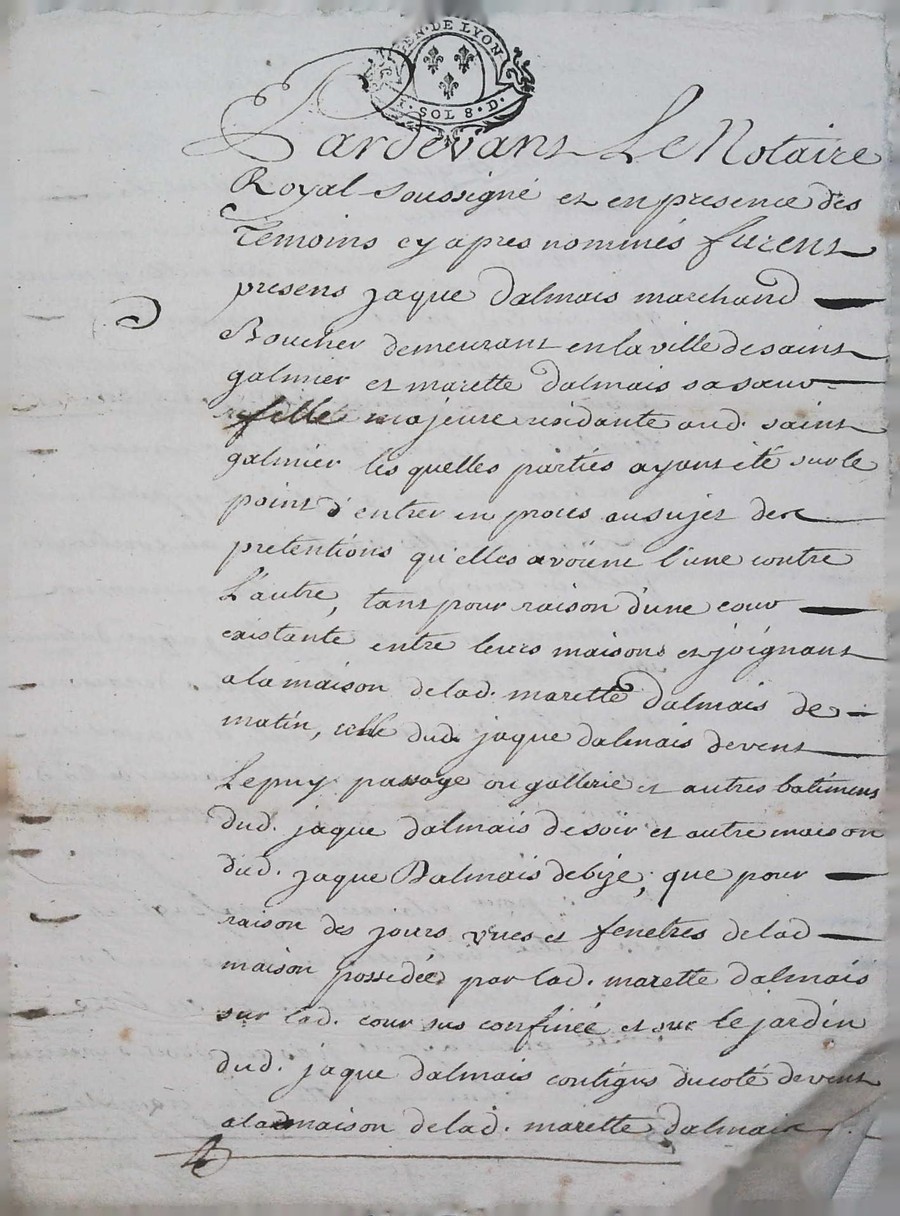 GEN · DE LYON ·
1 · SOL 8 · D ·
Pardevant Le Notaire
Royal soussigné et en presence des
Temoins cy apres nommés furent
presens jaque dalmais marchand
Boucher demeurant en la ville de saint
galmier et marette dalmais sa sœur
fille majeure residante aud. saint
galmier les quelles parties ayant été sur le
point d'entrer en proces au sujet des
pretentions qu'elles avoient l'une contre
L'autre, tant pour raison d'une cour
existante entre leurs maisons et joignant
a la maison de lad. marette dalmais de
matin, celle dud. jaque dalmais devent
Le puy passage ou gallerie et autres batimens
dud. jaque dalmais de soir et autre maison
dud. jaque Dalmais de bize; que pour
raison des jours vues et fenetres de lad
maison possedée par lad. marette dalmais
sur lad. cour sus confinée et sur le jardin
dud. jaque dalmais contigus du coté devent
a la maison de lad. marette dalmais